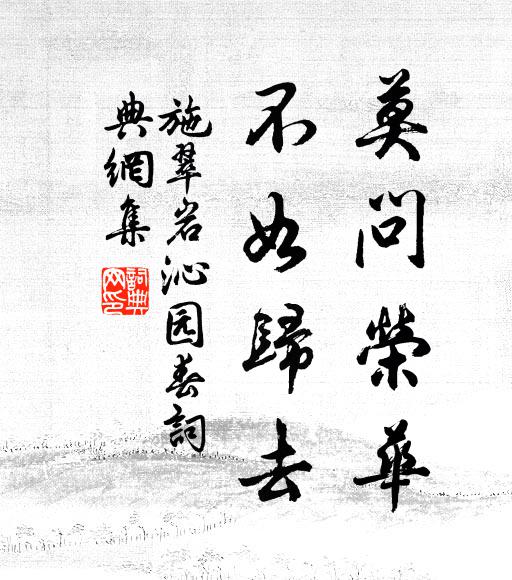 莫問榮華
不如歸去
施翠岩沁园春詞
典網集
詞典網印